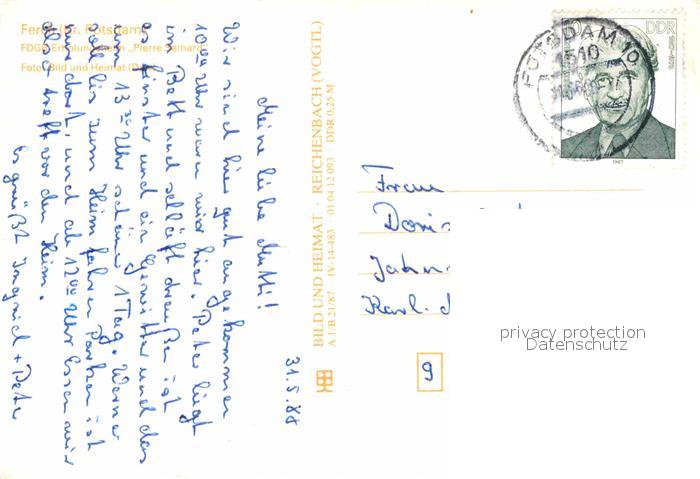 Ferch Kr. Potsdam
FDGB-Erholungsheim „Pierre Semard"
Foto: Bild und Heimat
31.5.88
Meine liebe Mutti!
Wir sind hier gut angekommen
10 00 Uhr waren wir hier. Peter liegt
im Bett und schläft draußen ist
finster und ein Gewitter und das
um 13 30 Uhr schöner 1 Tag. Werner
soll bis zum Heim fahren Parken ist
nur dort, und ab 12 00 Uhr Essen wir
also trefft vor den Heim.
Es grüßt Ingrid + Peter
BILD UND HEIMAT · REICHENBACH (VOGTL)
A 1/B 21/87 IV-14-483 · 01 04 12 093 DDR 0,25 M
POTSDAM 10
1510
DDR
10
1987
Frau
Doris
Jahn
Karl-
9
privacy protection
Datenschutz